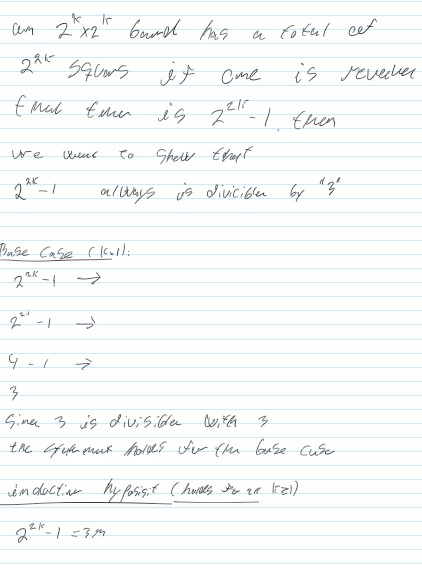 an 2^k x 2^k board has a total of
2^2k squars if one is removed
that then is 2^2k - 1. then
we want to show that
2^2k - 1 always is divicible by "3"
Base Case (k=1):
2^2k - 1 →
2^2·1 - 1 →
4 - 1 →
3
Since 3 is divisible with 3
the statement holds for the base case
inductive hyposist (holds for all k≥1)
2^2k - 1 = 3m